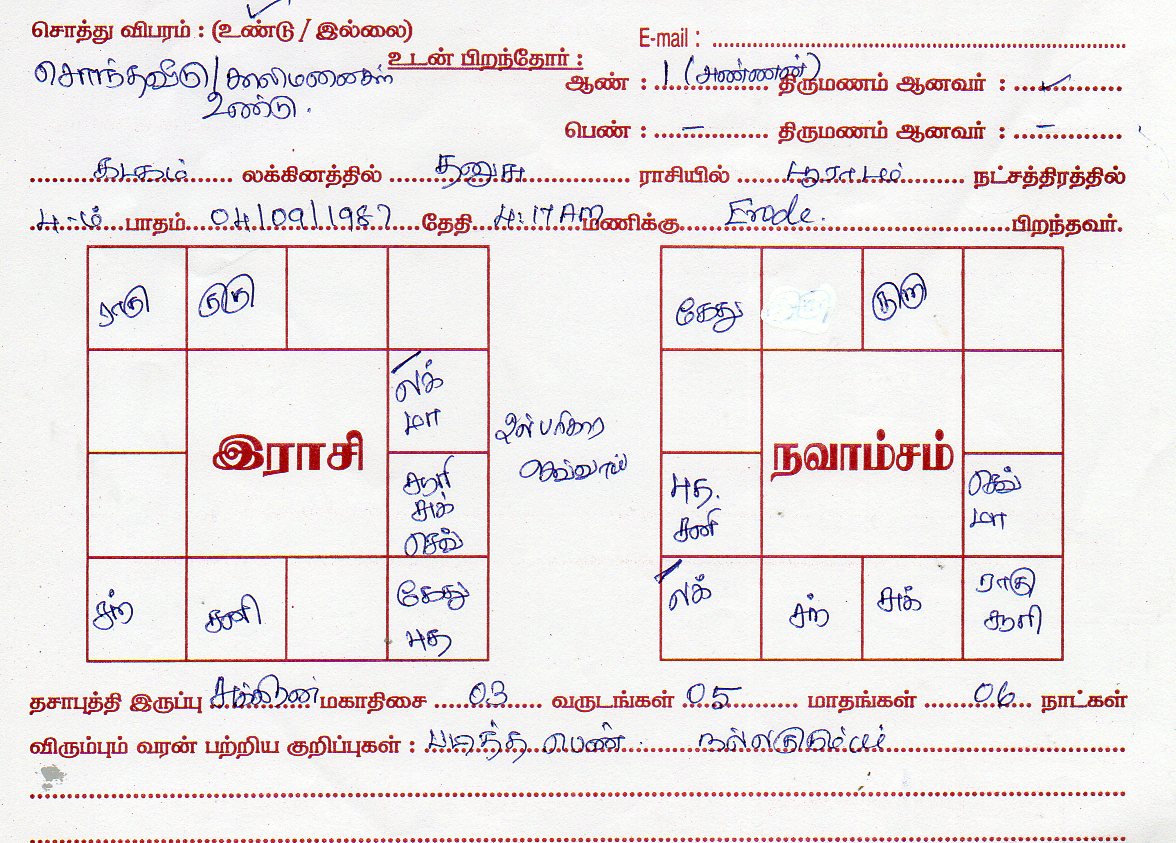 சொத்து விபரம் : (உண்டு / இல்லை)
E-mail : ........
உடன் பிறந்தோர் :
சொந்தவீடு / காலிமனைகள்
உண்டு.
ஆண் : 1 (அண்ணன்) திருமணம் ஆனவர் : ✓
பெண் : – திருமணம் ஆனவர் : –
கடகம் லக்கினத்தில் தனுசு ராசியில் பூராடம் நட்சத்திரத்தில்
4-ம் பாதம் 04/09/1987 தேதி 4:17 AM மணிக்கு Erode. பிறந்தவர்.
ராகு குரு
லக்
மா
இராசி
சூரி
சுக்
செவ்
சந் சனி கேது
புத
பரிகார
செவ்வாய்
கேது குரு
நவாம்சம்
புத.
சனி
செவ்
மா
லக் சந் சுக் ராகு
சூரி
தசாபுத்தி இருப்பு சுக்கிரன் மகாதிசை 03 வருடங்கள் 05 மாதங்கள் 06 நாட்கள்
விரும்பும் வரன் பற்றிய குறிப்புகள் : படித்த பெண். நல்லகுடும்பம்